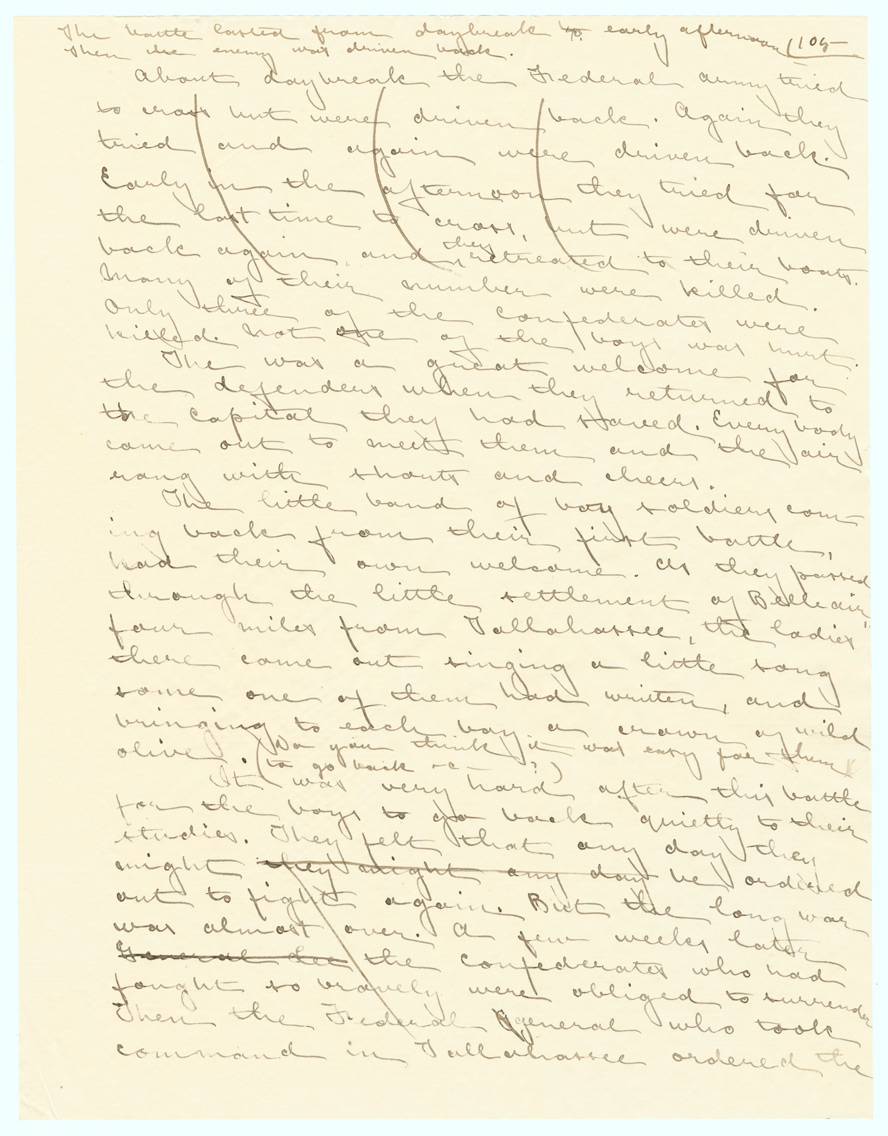 The battle lasted from daybreak to early afternoon 105
Then the enemy was driven back.
About daybreak the Federal army tried
to cross but were driven back. Again they
tried and again were driven back.
Early in the afternoon they tried for
the last time to cross, but were driven
back again, and they retreated to their boats.
Many of their number were killed.
Only three of the confederates were
killed. Not one of the boys was hurt.
The was a great welcome for
the defenders when they returned to
the capital they had staved. Everybody
came out to meet them and the air
rang with shouts and cheers.
The little band of boy soldiers com-
ing back from their first battle,
had their own welcome. As they passed
through the little settlement of Belleair,
four miles from Tallahassee, the ladies
there came out singing a little song
some one of them had written, and
bringing to each boy a crown of wild
olive. (Do you think it was easy for them
to go back - ?)
It was very hard after this battle
for the boys to go back quietly to their
studies. They felt that any day they
might they might any day be ordered
out to fight again. But the long war
was almost over. A few weeks later
General Lee the confederates who had
fought so bravely were obliged to surrender
Then the Federal general who took
command in Tallahassee ordered the